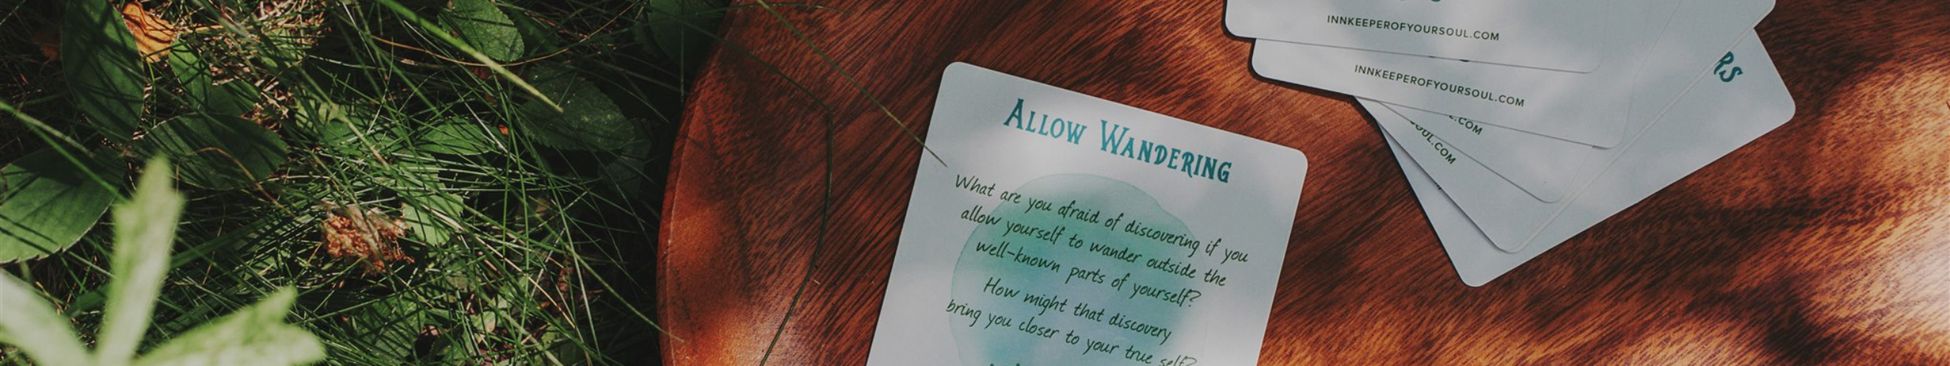 INNKEEPEROFYOURSOUL.COM
INNKEEPEROFYOURSOUL.COM
RS
OUL.COM
Allow Wandering
What are you afraid of discovering if you
allow yourself to wander outside the
well-known parts of yourself?
How might that discovery
bring you closer to your true self?